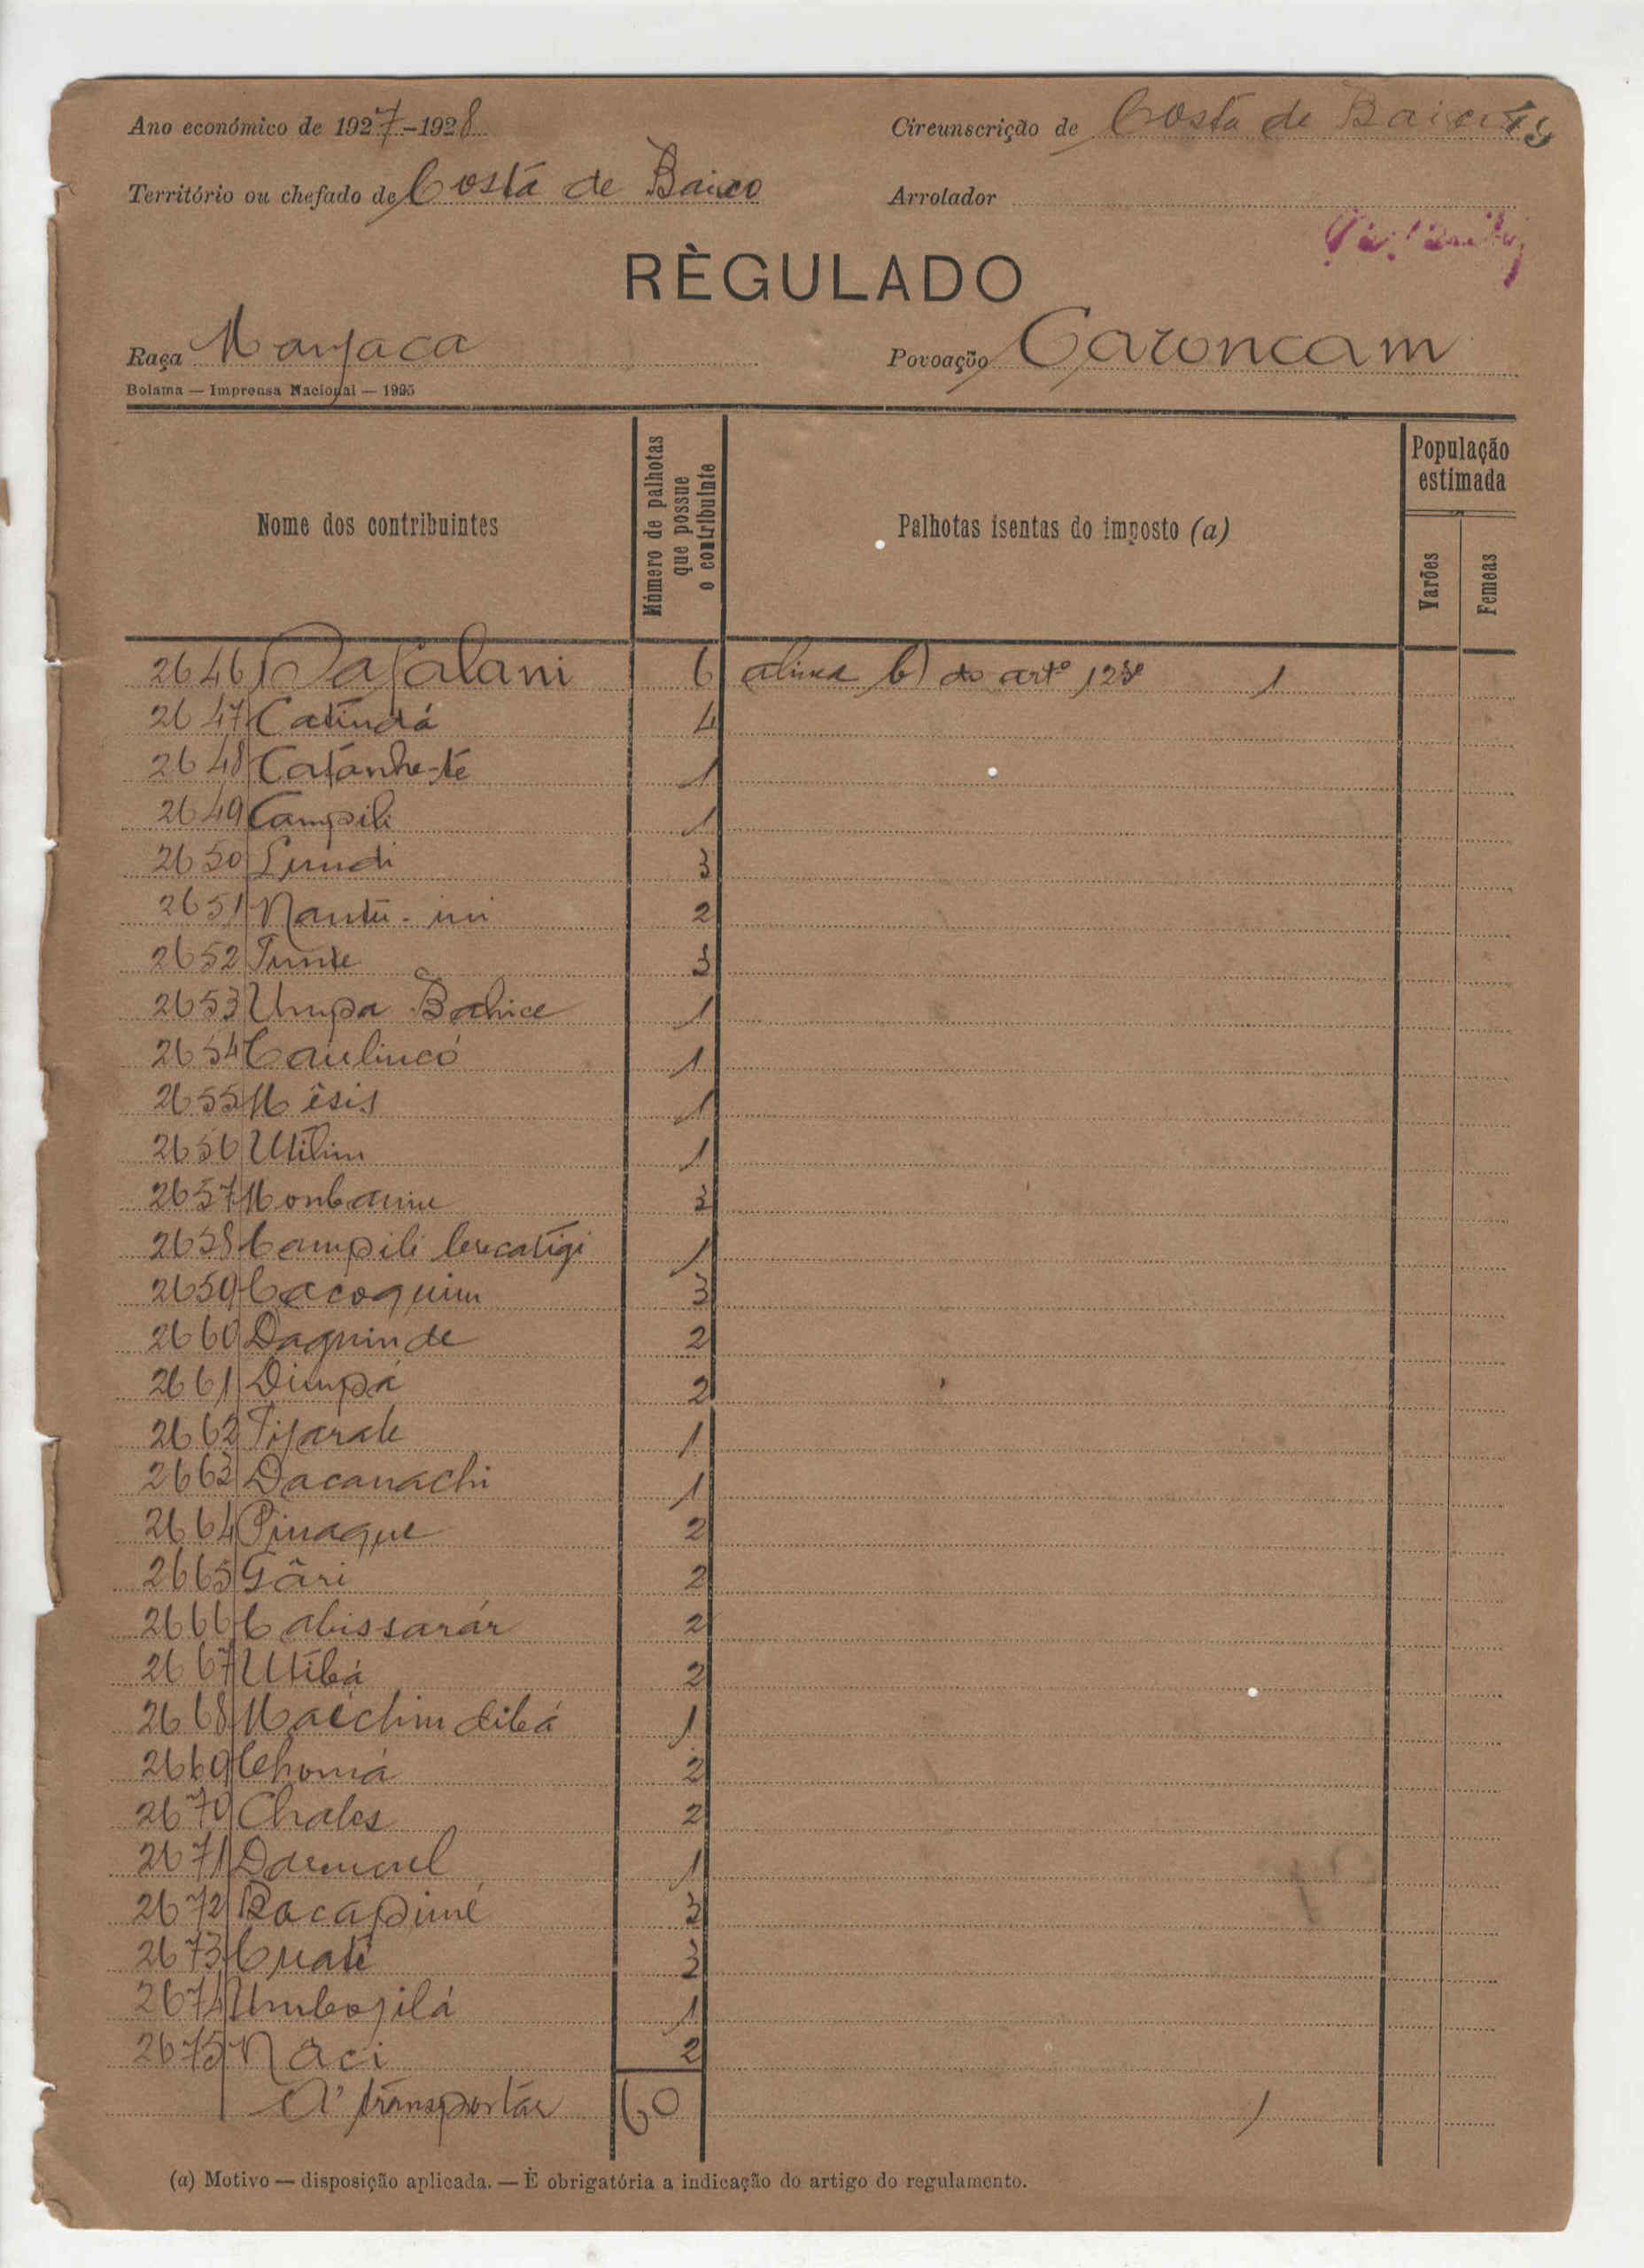 Ano económico de 1927-1928
Circunscrição de Costa de Baixo
Território ou chefado de Costa de Baixo
Arrolador
RÈGULADO
Raça Manjaca
Povoação Caroncam
Bolama — Imprensa Nacional — 1925
Nome dos contribuintes
Número de palhotas que possue o contribuinte
Palhotas isentas do imposto (a)
População estimada
Varões
Femeas
2646 6 alinea b) do artº 123º 1
2647 Catindá 4
2648 Catanhe-té 1
2649 Campili 1
2650 3
2651 Nantú-ini 2
2652 3
2653 Umpa Bahice 1
2654 Caulincó 1
2655 Mêsis 1
2656 Utilim 1
2657 3
2658 Campili 1
2659 Cacoquim 3
2660 Daguinde 2
2661 Dimpá 2
2662 Tijarate 1
2663 Dacanachi 1
2664 Pinaque 2
2665 Gâri 2
2666 Cabissarár 2
2667 Utibá 2
2668 1
2669 2
2670 Chales 2
2671 1
2672 Bacapimé 3
2673 Cuaté 3
2674 Umbojilá 1
2675 Naci 2
A transportar 60 1
(a) Motivo — disposição aplicada. — È obrigatória a indicação do artigo do regulamento.